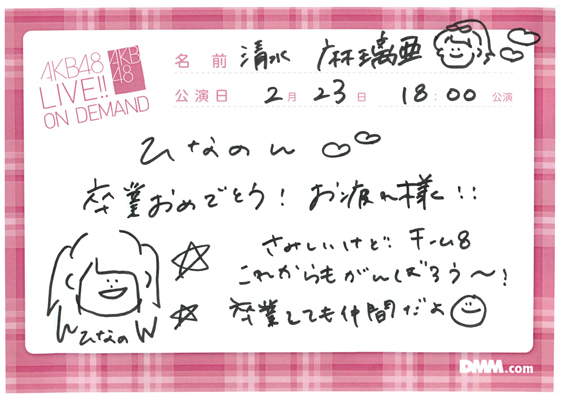 AKB48
LIVE!!
ON DEMAND
AKB
48
名前 清水 麻璃亜
公演日 2月 23日 18:00 公演
ひなのん
卒業おめでとう! お疲れ様!!
さみしいけど! チーム8
これからもがんばろう〜!
卒業しても仲間だよ
ひなの
DMM.com